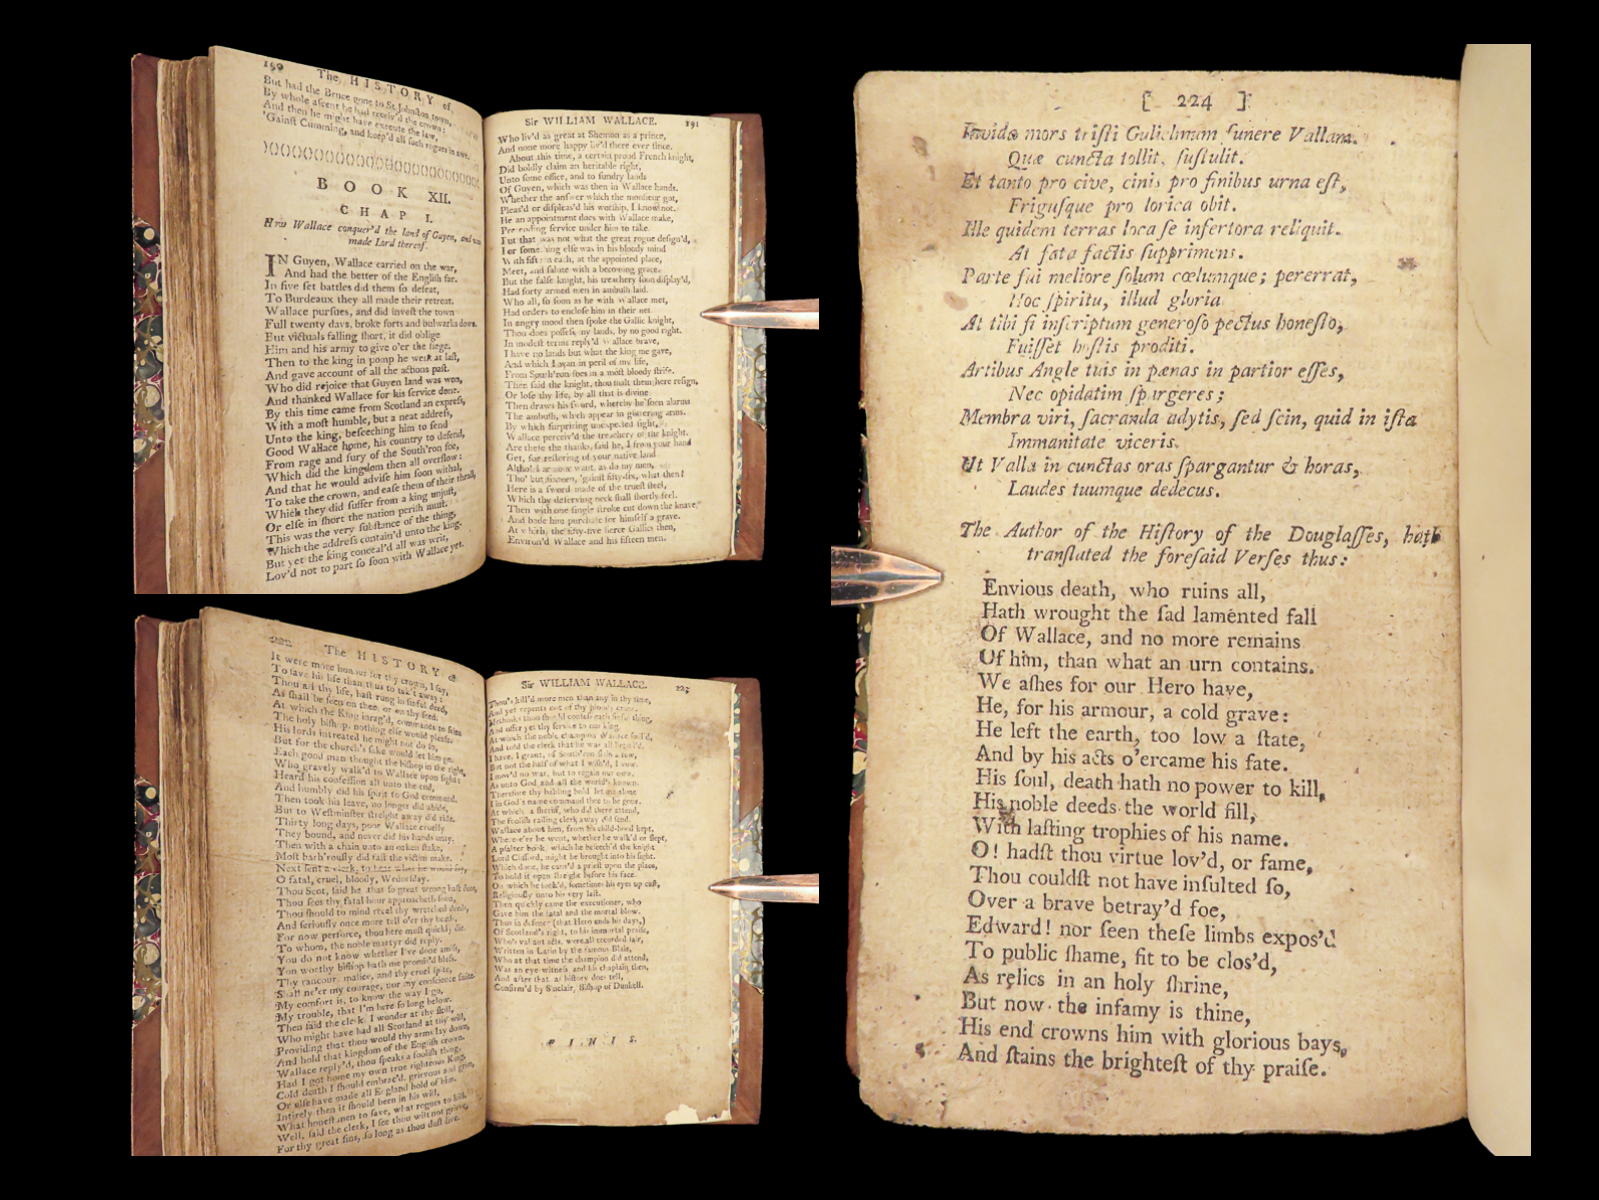 190
The HISTORY of
But had the Bruce gone to St. Johnston town,
By whole assent he had receiv'd the crown:
And then he might have execute the law,
'Gainst Cumming, and keep'd all such rogues in awe.
BOOK XII.
CHAP I.
How Wallace conquer'd the land of Guyen, and was
made Lord thereof.
IN Guyen, Wallace carried on the war,
And had the better of the English far.
In five set battles did them so defeat,
To Burdeaux they all made their retreat.
Wallace pursues, and did invest the town
Full twenty days, broke forts and bulwarks down.
But victuals falling short, it did oblige
Him and his army to give o'er the siege.
Then to the king in pomp he went at last,
And gave account of all the actions past.
Who did rejoice that Guyen land was won,
And thanked Wallace for his service done.
By this time came from Scotland an express,
With a most humble, but a neat address,
Unto the king, beseeching him to send
Good Wallace home, his country to defend,
From rage and fury of the South'ron foe,
Which did the kingdom then all overflow:
And that he would advise him soon withal,
To take the crown, and ease them of their thrall,
Which they did suffer from a king unjust,
Or else in short the nation perish must.
This was the very substance of the thing,
Which the address contain'd unto the king.
But yet the king conceal'd all was writ,
Lov'd not to part so soon with Wallace yet.
Sir WILLIAM WALLACE. 191
Who liv'd as great at Shenon as a prince,
And none more happy liv'd there ever since.
About this time, a certain proud French knight,
Did boldly claim an heritable right,
Unto some office, and to sundry lands
Of Guyen, which was then in Wallace hands.
Whether the answer which the monsieur got,
Pleas'd or displeas'd his worship, I know not.
He an appointment does with Wallace make,
Pretending service under him to take.
But that was not what the great rogue design'd,
For something else was in his bloody mind
With fifteen each, at the appointed place,
Meet, and salute with a becoming grace.
But the false knight, his treachery soon display'd,
Had forty armed men in ambush laid.
Who all, so soon as he with Wallace met,
Had orders to enclose him in their net.
In angry mood then spoke the Gallic knight,
Thou does possess my lands, by no good right.
In modest terms reply'd Wallace brave,
I have no lands but what the king me gave,
And which I won in peril of my life,
From South'ron foes in a most bloody strife.
Then said the knight, thou shalt them here resign,
Or lose thy life, by all that is divine
Then draws his sword, whereby he soon alarms
The ambush, which appear in glittering arms.
By which surprizing unexpected sight,
Wallace perceiv'd the treachery of the knight.
Are these the thanks, said he, I from your hand
Get, for restoring of your native land
Altho' armour want, as do my men,
Tho' but sixteen, 'gainst fifty-six, what then!
Here is a sword made of the truest steel,
Which thy deserving neck shall shortly feel.
Then with one single stroke cut down the knave,
And bade him purchase for himself a grave.
At which, the fifty-five fierce Gallics then,
Environ'd Wallace and his fifteen men.
The HISTORY of
It were more honour for thy crown, I say,
To save his life than thus to tak't away:
Thou all thy life, hast rung in sinful deed,
As shall be seen on thee, or on thy seed.
At which the King inrag'd, commands to seize
The holy bishop, nothing else would please.
His lords intreated he might not do so,
But for the church's sake would let him go.
Each good man thought the bishop in the right,
Who gravely walk'd to Wallace upon sight
Heard his confession all unto the end,
And humbly did his spirit to God commend.
Then took his leave, no longer did abide,
But to Westminster streight away did ride.
Thirty long days, poor Wallace cruelly
They bound, and never did his hands untay.
Then with a chain unto an oaken stake,
Most barb'rously did fast the victim make.
Next sent a clerk, to hear what he would say,
O fatal, cruel, bloody, Wednesday.
Thou Scot, said he, that so great wrong hast done,
Thou sees thy fatal hour approacheth soon,
Thou should to mind recal thy wretched deeds,
And seriously once more tell o'er thy beads.
For now perforce, thou here must quickly die.
To whom, the noble martyr did reply.
You do not know whether I've done amiss,
Yon worthy bishop hath me promis'd bless.
Thy rancour, malice, and thy cruel spite,
Shall ne'er my courage, nor my conscience smite.
My comfort is, to know the way I go,
My trouble, that I'm here so long below.
Then said the clerk, I wonder at thy skill,
Who might have had all Scotland at thy will,
Providing that thou would thy arms lay down,
And hold that kingdom of the English crown.
Wallace reply'd, thou speaks a foolish thing,
Had I got home my own true righteous King,
Cold death I should embrac'd, grievous and grim,
Or else have made all England hold of him.
Intirely then it should been in his will,
What honest men to save, what rogues to kill.
Well, said the clerk, I see thou wilt not grieve,
For thy great sins, so long as thou dost live.
Sir WILLIAM WALLACE. 223
Thou'st kill'd more men than any in thy time,
And yet repents not of thy bloody crime.
Methinks thou should confess each sinful thing,
And offer yet thy service to our king.
At which the noble champion Wallace smil'd,
And told the clerk that he was all beguil'd.
I have, I grant, of South'ron slain a few,
But not the half of what I wish'd, I vow.
I mov'd no war, but to regain our own,
As unto God and all the world's known.
Therefore thy babling hold let me alone
I in God's name command thee to be gone.
At which, a sheriff, who did there attend,
The foolish railing clerk away did send.
Wallace about him, from his child-hood kept,
Where-e'er he went, whether he walk'd or slept,
A psalter book, which he beseech'd the knight
Lord Clifford, might be brought into his sight.
Which done, he caus'd a priest upon the place,
To hold it open streight before his face.
On which he look'd, sometimes his eyes up cast,
Religiously unto his very last.
Then quickly came the executioner, who
Gave him the fatal and the mortal blow.
Thus in defence (that Hero ends his days,)
Of Scotland's right, to his immortal praise,
Who's valiant acts, were all recorded fair,
Written in Latin by the famous Blair,
Who at that time the champion did attend,
Was an eye witness, and his chaplain then,
And after that, as history does tell,
Confirm'd by Sinclair, Bishop of Dunkell.
FINIS.
[ 224 ]
Invida mors tristi Gulielmum funere Vallam.
Quæ cuncta tollit, sustulit.
Et tanto pro cive, cinis pro finibus urna est,
Frigusque pro lorica obit.
Ille quidem terras loca se infertora reliquit.
At fata factis supprimens.
Parte sui meliore solum cœlumque; pererrat,
Hoc spiritu, illud gloria
At tibi si inscriptum generoso pectus honesto,
Fuisset hostis proditi.
Artibus Angle tuis in pœnas in partior esses,
Nec opidatim spargeres;
Membra viri, sacranda adytis, sed scin, quid in ista
Immanitate viceris.
Ut Valla in cunctas oras spargantur & horas,
Laudes tuumque dedecus.
The Author of the History of the Douglasses, hath
translated the foresaid Verses thus:
Envious death, who ruins all,
Hath wrought the sad lamented fall
Of Wallace, and no more remains
Of him, than what an urn contains.
We ashes for our Hero have,
He, for his armour, a cold grave:
He left the earth, too low a state,
And by his acts o'ercame his fate.
His soul, death hath no power to kill,
His noble deeds the world fill,
With lasting trophies of his name.
O! hadst thou virtue lov'd, or fame,
Thou couldst not have insulted so,
Over a brave betray'd foe,
Edward! nor seen these limbs expos'd
To public shame, fit to be clos'd,
As relics in an holy shrine,
But now the infamy is thine,
His end crowns him with glorious bays,
And stains the brightest of thy praise.